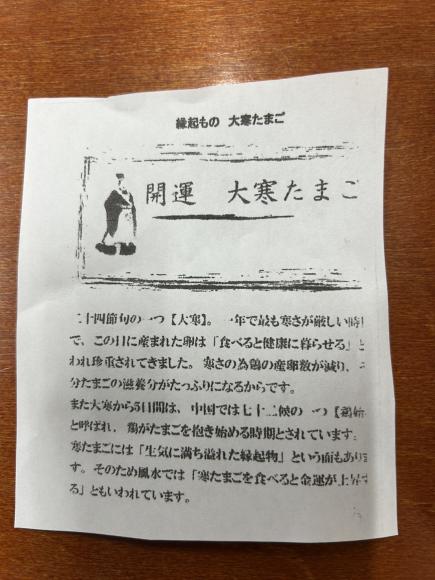 縁起もの 大寒たまご
開運 大寒たまご
二十四節句の一つ【大寒】。一年で最も寒さが厳しい時
で、この日に産まれた卵は「食べると健康に暮らせる」と
われ珍重されてきました。寒さの為鶏の産卵数が減り、
分たまごの滋養分がたっぷりになるからです。
また大寒から5日間は、中国では七十二候の一つ【鶏始
と呼ばれ、鶏がたまごを抱き始める時期とされています。
寒たまごには「生気に満ち溢れた縁起物」という面もあり
す。そのため風水では「寒たまごを食べると金運が上昇す
る」ともいわれています。